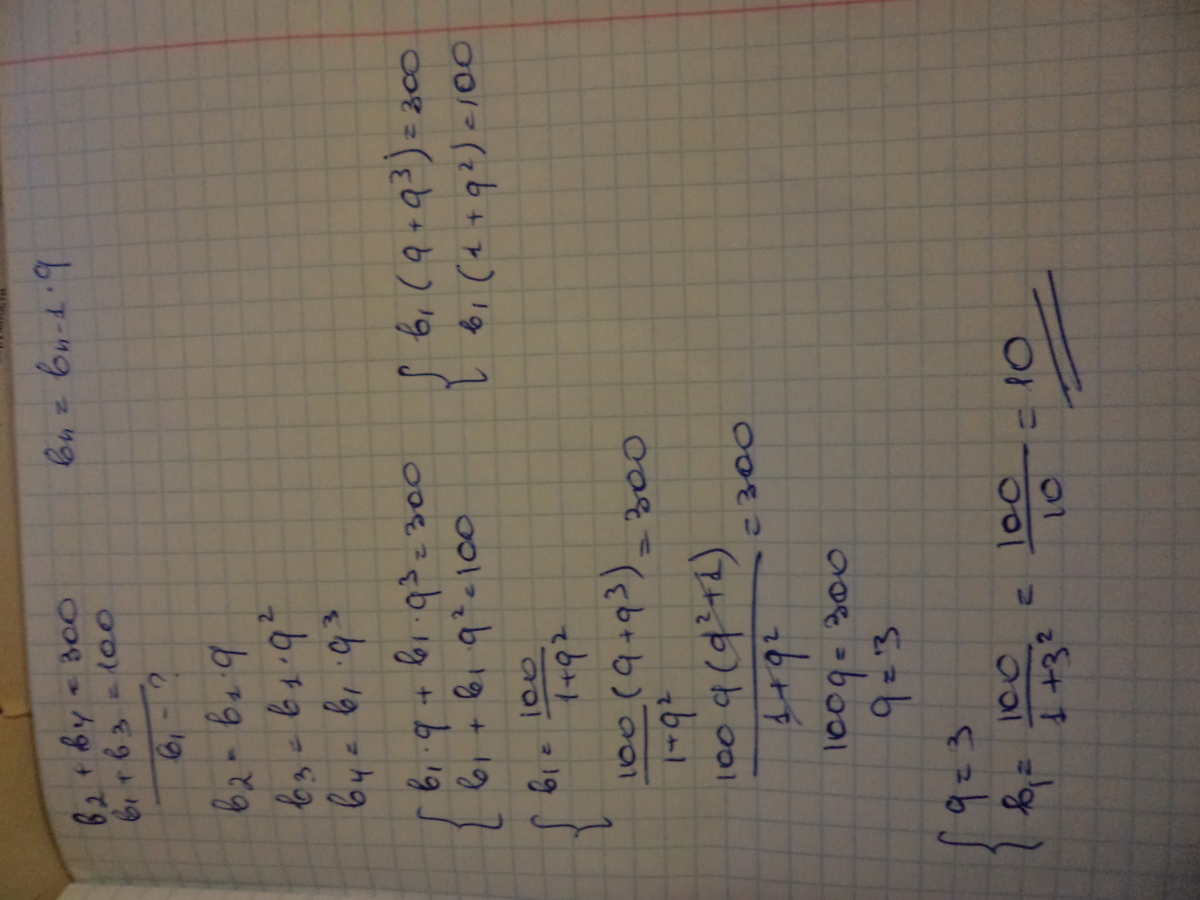 в₂ + в₄ = 300
в₁ + в₃ = 100
в₁ - ?
вₙ = вₙ₋₁ · q
в₂ = в₁ · q
в₃ = в₁ · q²
в₄ = в₁ · q³
{ в₁ · q + в₁ · q³ = 300
в₁ + в₁ · q² = 100
{ в₁ (q + q³) = 300
в₁ (1 + q²) = 100
{ в₁ = 100/1+q²
100/1+q² (q + q³) = 300
100 q (q² + 1)/1+q² = 300
100 q = 300
q = 3
{ q = 3
в₁ = 100/1+3² = 100/10 = 10